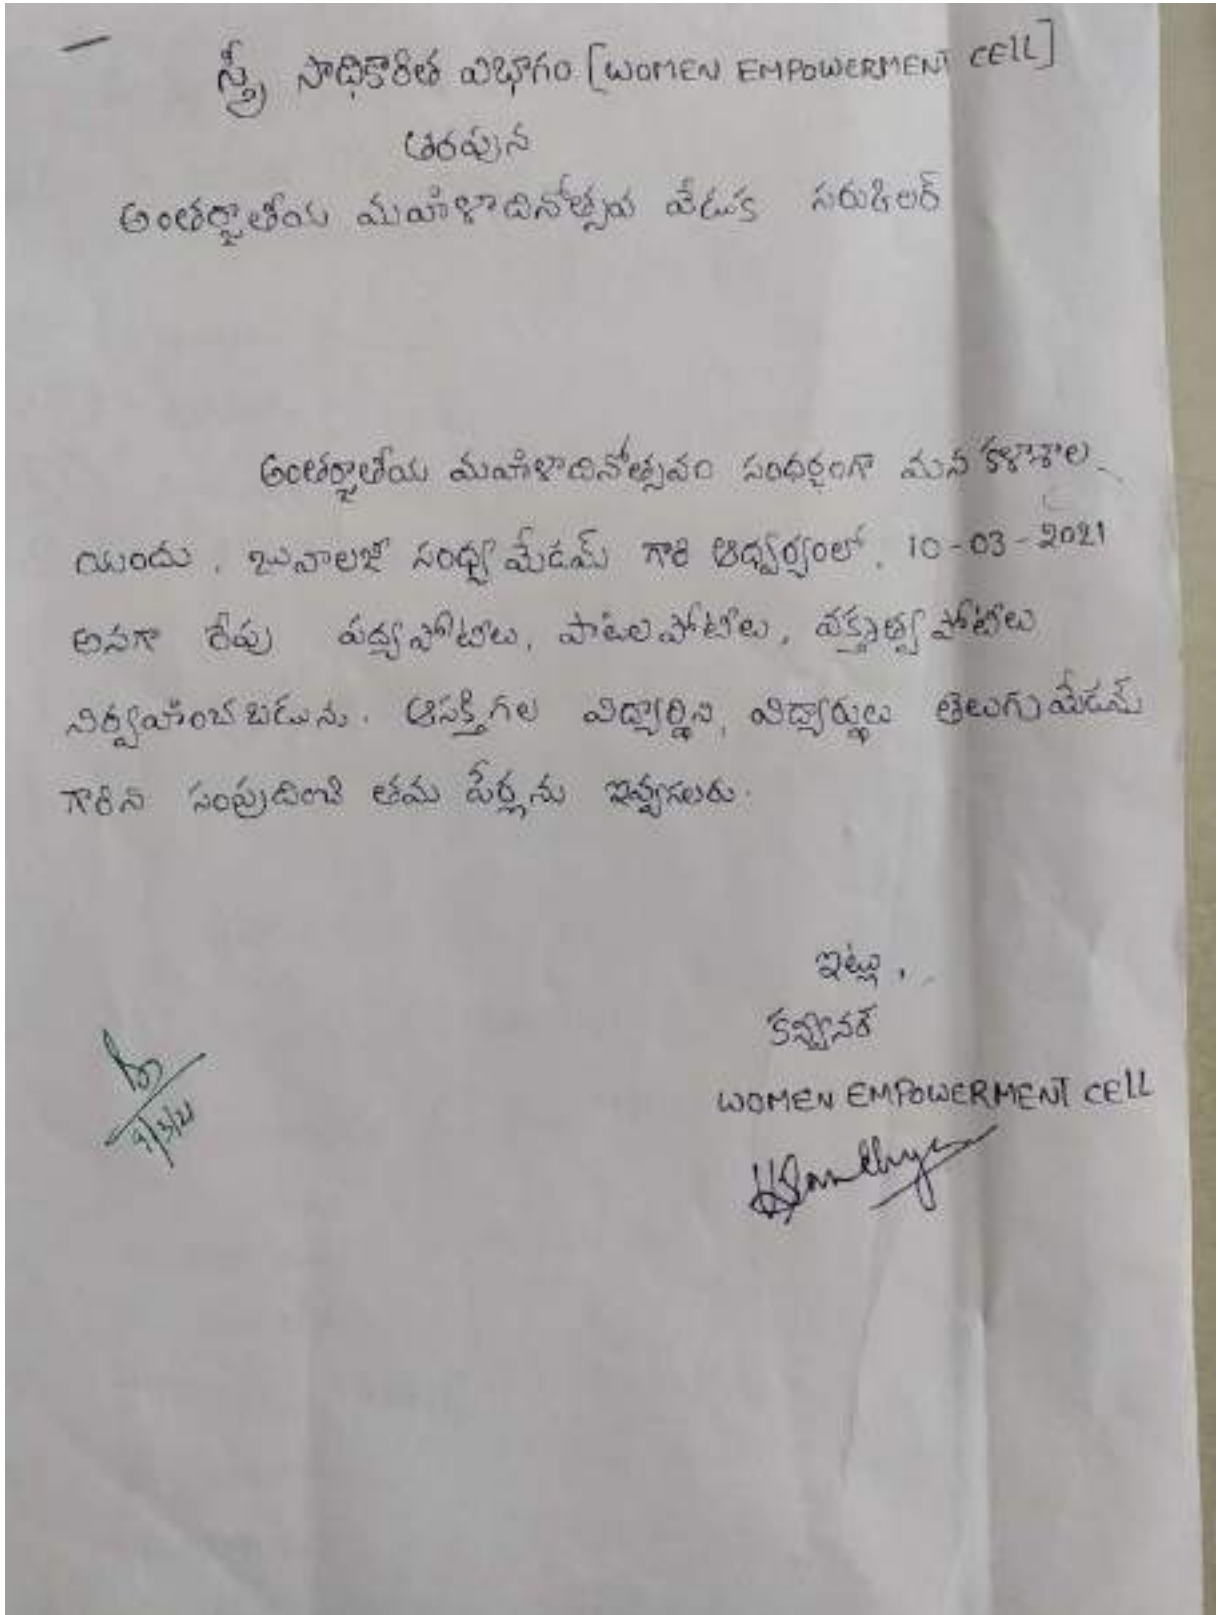 స్త్రీ సాధికారిత విభాగం [WOMEN EMPOWERMENT CELL]
తరపున
అంతర్జాతీయ మహిళాదినోత్సవ వేడుక సర్కులర్
అంతర్జాతీయ మహిళాదినోత్సవం సందర్భంగా మన కళాశాల
యందు, జువాలజీ సంధ్య మేడమ్ గారి ఆధ్వర్యంలో, 10-03-2021
అనగా రేపు పద్యపోటీలు, పాటలపోటీలు, వక్తృత్వపోటీలు
నిర్వహించబడును. ఆసక్తిగల విద్యార్థిని, విద్యార్థులు తెలుగుమేడమ్
గారిని సంప్రదించి తమ పేర్లను ఇవ్వగలరు.
ఇట్లు,
కన్వీనర్
WOMEN EMPOWERMENT CELL
KSandhya
9/3/21